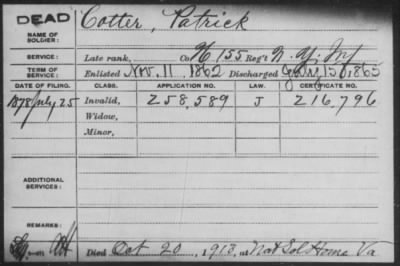 DEAD
Cotter, Patrick
NAME OF SOLDIER:
SERVICE: Late rank, Co. H, 155 Reg't N. Y. Inf
TERM OF SERVICE: Enlisted Nov. 11, 1862 Discharged July 15, 1865
DATE OF FILING. CLASS. APPLICATION NO. LAW. CERTIFICATE NO.
1878 July 25 Invalid, 258,589 J 216,796
Widow,
Minor,
ADDITIONAL SERVICES:
REMARKS:
Died Oct 20, 1913, at Nat Sol Home Va